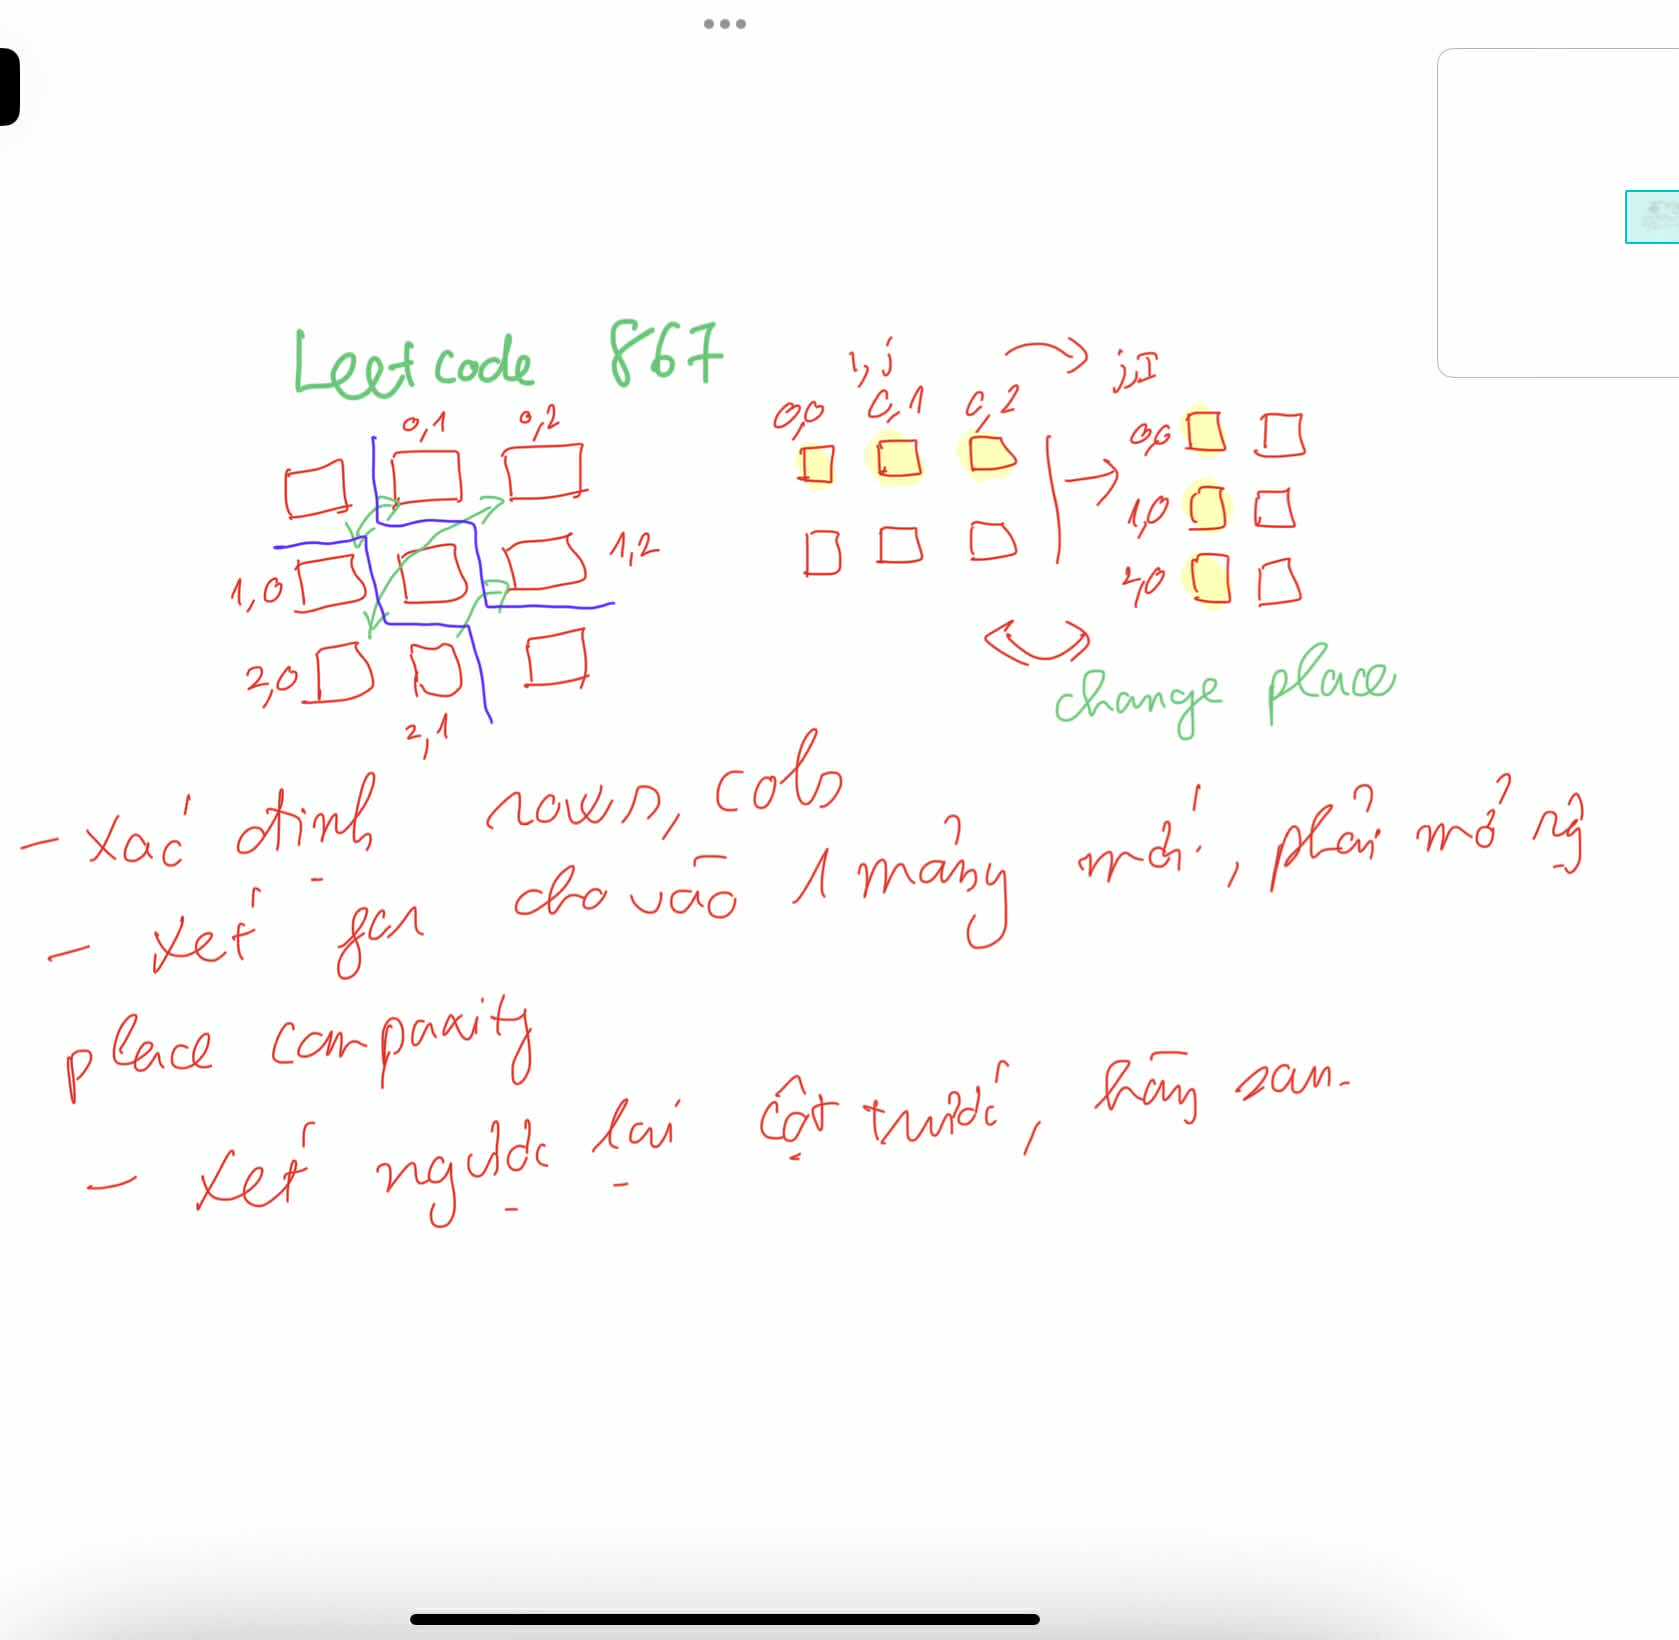 Leetcode 867
i, j
j, I
0,1
0,2
1,0
1,2
2,0
2,1
0,0
0,1
0,2
0,0
1,0
2,0
change place
- xác định rows, cols
- xét gán cho vào 1 mảng mới, phải mở rộ
place compaxity
- xét ngược lại cột trước, hàng sau.